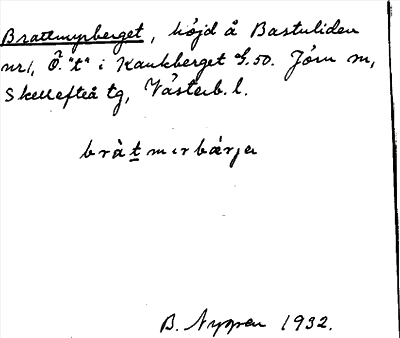 Brattmyrberget, höjd å Bastuliden
nr 1, Ö. "t" i Kankberget S. 50. Jörn m,
Skellefteå tg, Västerb. l.
bràt̲mırbárjə
B. Nygren 1932.